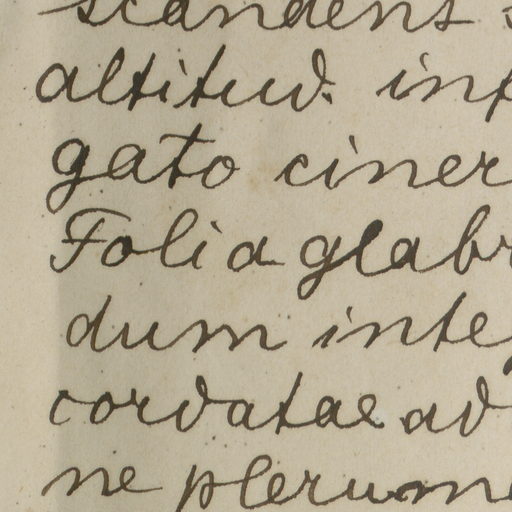 scandens
altitud. inf
gato ciner
Folia glabr
dum inte
cordatae ad
ne plerum